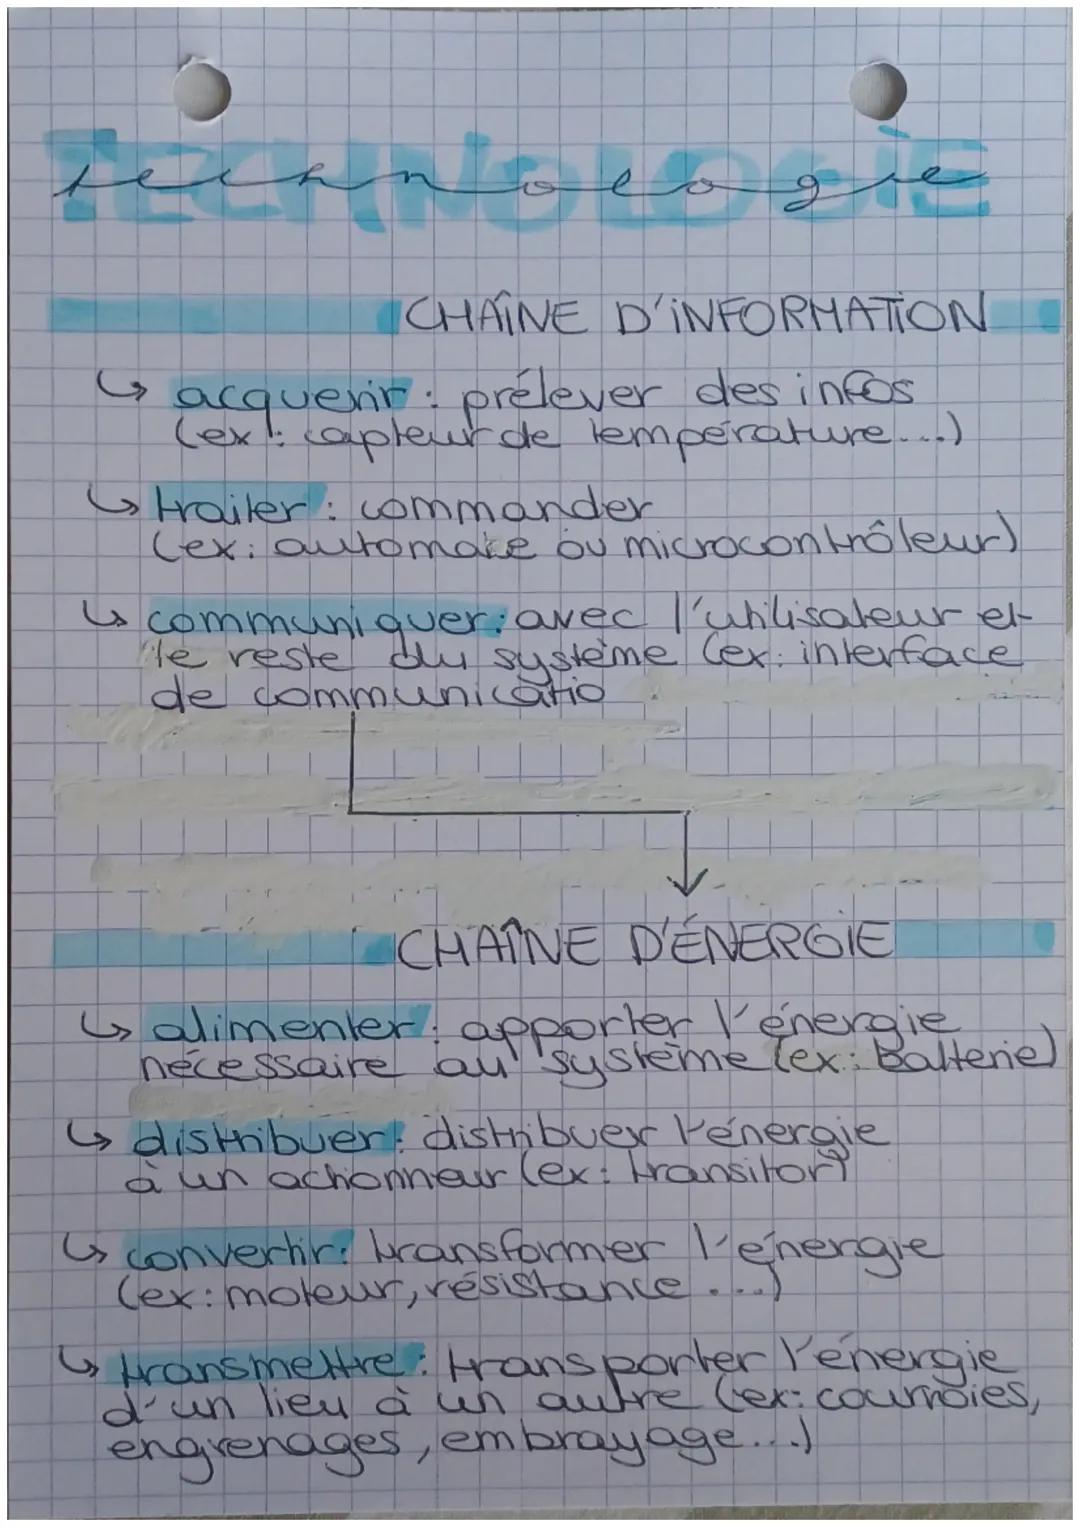 TECHNOLOGIE
technologie
CHAÎNE D'INFORMATION
↳ acquerir : prélever des infos
(ex : capteur de température...)
↳ traiter : commander
(ex : automate ou microcontrôleur)
↳ communiquer : avec l'utilisateur et
le reste du système (ex : interface
de communicatio
CHAÎNE D'ÉNERGIE
↳ alimenter : apporter l'énergie
nécessaire au système (ex : batterie)
↳ distribuer : distribuer l'énergie
à un actionneur (ex : transitor)
↳ convertir : transformer l'énergie
(ex : moteur, résistance ...)
↳ transmettre : transporter l'énergie
d'un lieu à un autre (ex : courroies,
engrenages, embrayage...)